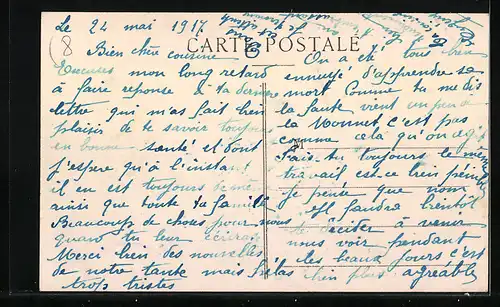 Le 24 mai 1917
CARTE POSTALE
Bien chère cousine
Excuses mon long retard
à faire réponse à ta dernière
lettre qui m'as fait bien
plaisir de te savoir toujours
en bonne santé et dont
j'espère qu'à l'instant
il en est toujours de même
ainsi que toute ta famille
Beaucoup de choses pour nous
quand tu leur écriras
Merci bien des nouvelles
de notre tante mais hélas
trop tristes
On a été tous bien
ennuyé d'apprendre sa
mort Comme tu me dis
la faute vient un peu
la Monnet c'est pas
comme cela qu'on agit
Fais-tu toujours le même
travail est-ce bien pénible
je pense que non
Il faudra bientôt
te décider à venir
nous voir pendant
les beaux jours c'est
bien plus agréable